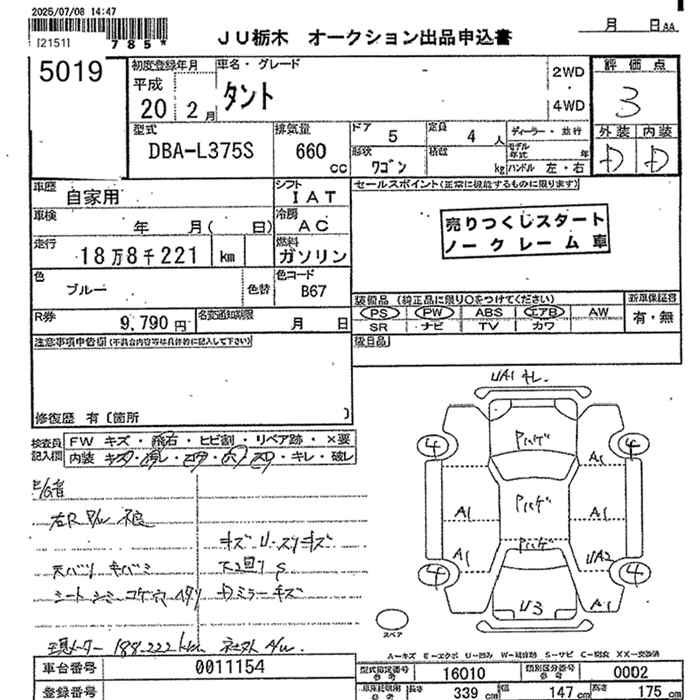 2026/07/08 14:47
[2151]
785*
JU栃木 オークション出品申込書
月 日 AA
5019
初度登録年月 車名・グレード 2WD ・ 4WD 評価点
平成 20 2月 タント 3
型式 排気量 ドア 5 定員 4人 ディーラー・並行 外装 内装
DBA-L375S 660 cc 形状 ワゴン 積載 kg モデル年式 年 ハンドル 左・右 D D
車歴 自家用 シフト IAT セールスポイント(正常に機能するものに限ります)
車検 年 月( 日) 冷房 AC
売りつくしスタート
ノークレーム車
走行 18万8千221 km 燃料 ガソリン
色 ブルー 色替 色コード B67
装備品 (純正品に限り○をつけてください) 新車保証書
PS PW ABS エアB AW 有・無
SR ナビ TV カワ
R券 9,790円 名変通知期限 月 日
注意事項申告欄(不具合内容等は具体的に記入して下さい)
修復歴 有 [箇所 ]
検査員記入欄 FW キズ・飛石・ヒビ割・リペア跡・×要
内装 キズ・汚レ・コゲ・穴・スレ・キレ・破レ
UA1 キレ
4 4
A1
A1 A1
A1 UA2
4 4
U3 A1
右R P/W 不良
キズ U・スリキズ
天バリ キバミ
シート シミ コゲ穴 ヘタリ ミラーキズ
現メーター 188,222km 社外A/W
スペア
A-キズ E-エクボ U-凹み W-補修跡 S-サビ C-腐食 XX-交換済
車台番号 0011154
型式指定番号 参考 16010 類別区分番号 参考 0002
登録番号
参考 長さ 339 cm 幅 147 cm 高さ 175 cm